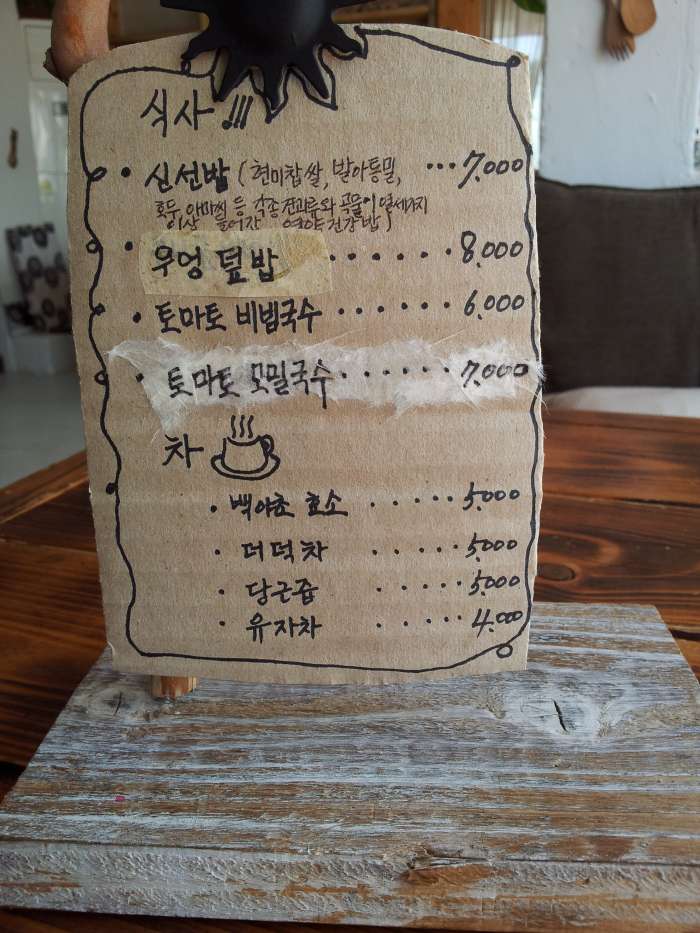 식사 !!!
• 신선밥 (현미찹쌀, 발아통밀, ...7,000
호두, 아마씨 등 각종 견과류와 곡물이 열세가지
이상 들어간 영양건강밥)
• 우엉 덮밥 ....... 8,000
• 토마토 비빔국수 ....... 6,000
• 토마토 모밀국수 ...... 7,000
차
• 백야초 효소 ..... 5,000
• 더덕차 ..... 5,000
• 당근즙 ..... 5,000
• 유자차 ..... 4,000